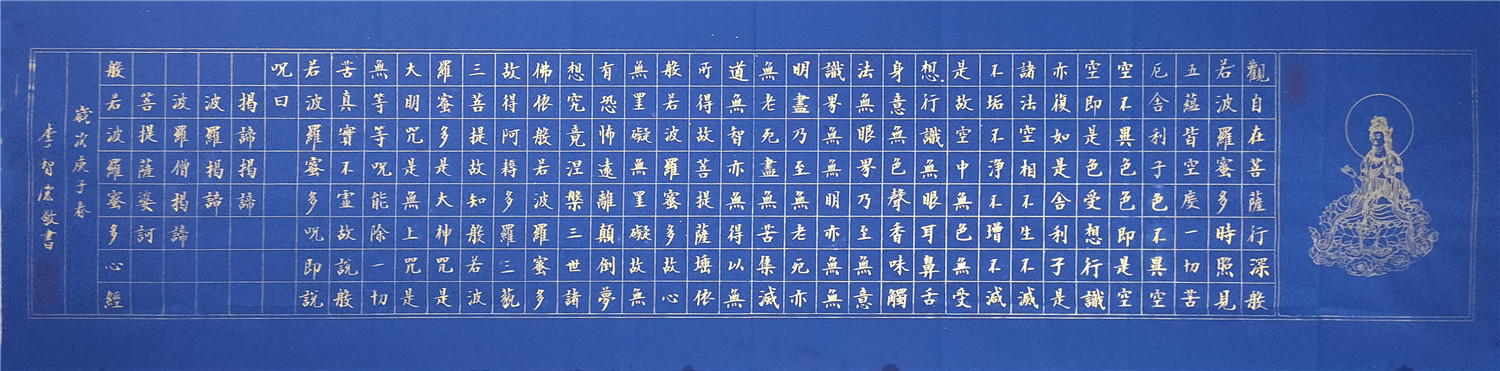 觀自在菩薩行深般
若波羅蜜多時照見
五蘊皆空度一切苦
厄舍利子色不異空
空不異色色即是空
空即是色受想行識
亦復如是舍利子是
諸法空相不生不滅
不垢不淨不增不減
是故空中無色無受
想行識無眼耳鼻舌
身意無色聲香味觸
法無眼界乃至無意
識界無無明亦無無
明盡乃至無老死亦
無老死盡無苦集滅
道無智亦無得以無
所得故菩提薩埵依
般若波羅蜜多故心
無罣礙無罣礙故無
有恐怖遠離顛倒夢
想究竟涅槃三世諸
佛依般若波羅蜜多
故得阿耨多羅三藐
三菩提故知般若波
羅蜜多是大神咒是
大明咒是無上咒是
無等等咒能除一切
苦真實不虛故說般
若波羅蜜多咒即說
咒曰
揭諦揭諦
波羅揭諦
波羅僧揭諦
菩提薩婆訶
般若波羅蜜多心經
歲次庚子春
李智敬書